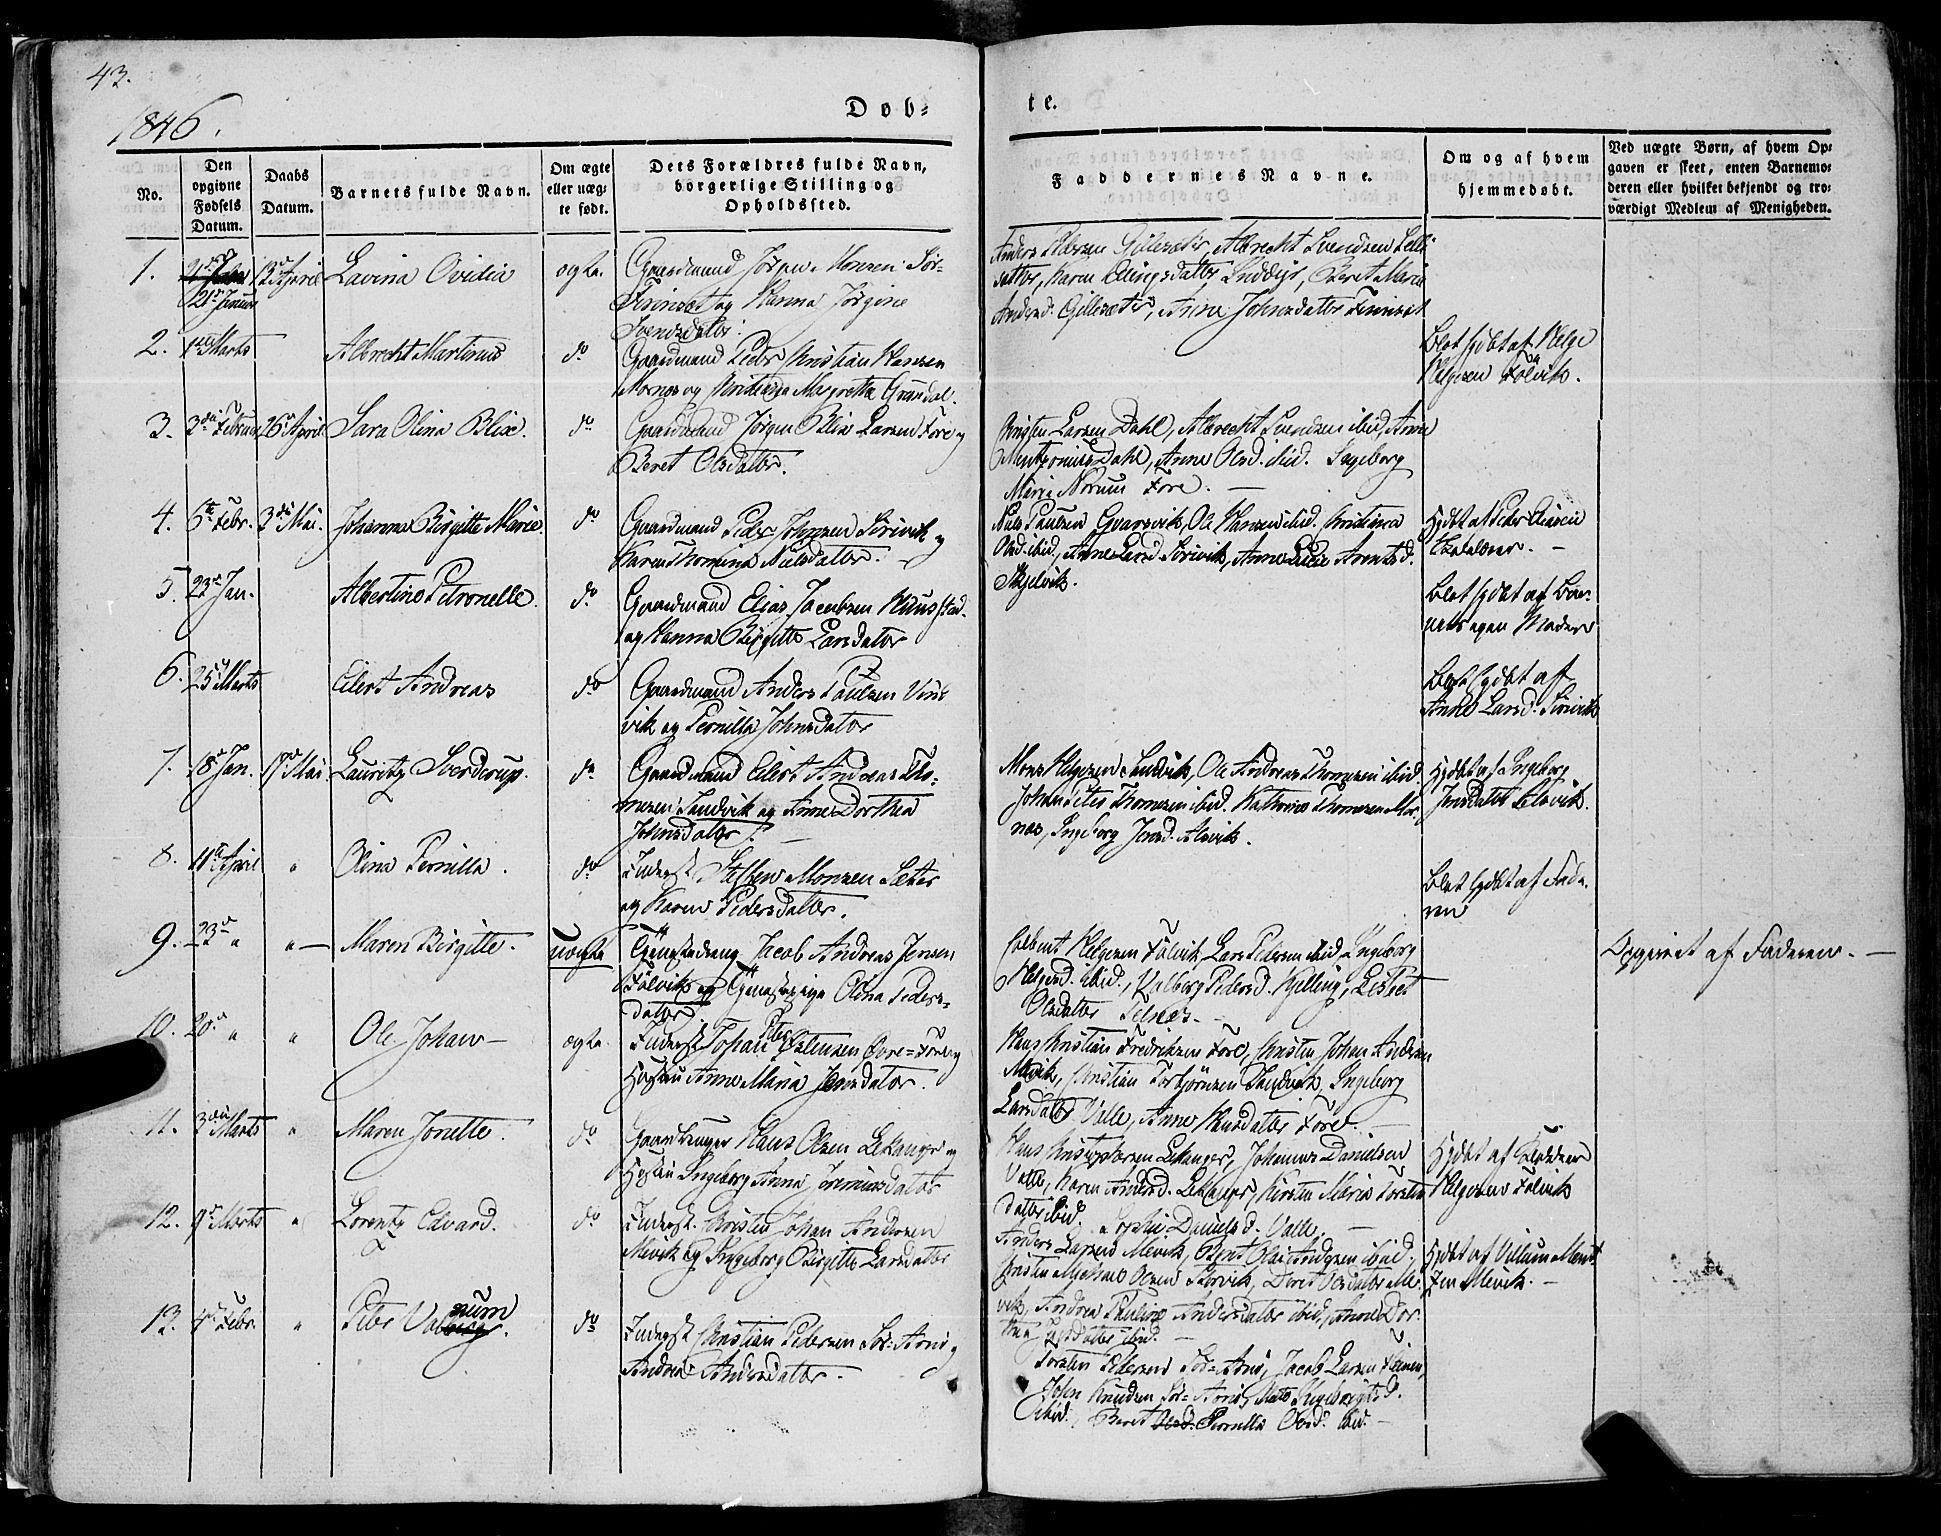 43.
1846.
Døb-
te.
No.
Den opgivne Fødsels Datum.
Daabs Datum.
Barnets fulde Navn.
Om ægte eller uægte født.
Dets Forældres fulde Navn, borgerlige Stilling og Opholdssted.
Faddernes Navne.
Om og af hvem hjemmedøbt.
Ved uægte Børn, af hvem Opgaven er skeet, enten Barnemoderen eller hvilket bekjendt og troværdigt Medlem af Menigheden.
1. 21 Januar 13 April Lavina Ovidia ægte. Gaardmand Jørgen Hansen Sør-
og Hanna Jørgine
Svendsdatter.
Anders Pedersen Gillesæter, Albrecht Svendsen
Karen Ellingsdatter Beret Maria
Andersd. Gillesæter, Anna Johnsdatter
2. 1ste Marts Albrecht Martinus do Gaardmand Peder Christian Hansen
Mornes og Margretha
Blot hjdøbt af Helge
Helgesen Følvik.
3. 3die Februar 26 April Sara Olina Blix. do Gaardmand Jørgen Blix Larsen Fore og
Beret Olsdatter.
Christen Larsen Dahl, Albrecht Svendsen ibid, Anna
Dahl, Anne Olsd. ibid. Ingeborg
Maria Fore. —
4. 6te Febr. 3die Mai. Johanna Birgitte Marie. do Gaardmand Peder Johnsen Sørvik og
Karen Thomina Nielsdatter.
Niels Paulsen Ole Hansen ibid. Christina
Olsd. ibid, Anne Larsd. Sørvik, Anne Arentsd.
Skjelvik.
Hjdøbt af Peter
5. 23de Jan. Albertine Petronelle. do Gaardmand Elias Jacobsen
og Hanna Birgitte Larsdatter
Blot hjdøbt af Bar-
nets egen Moder
6. 25 Marts Eilert Andreas do Gaardmand Anders Paulsen
vik og Pernille Johnsdatter
Blot hjdøbt af
Anne Larsd. Sørvik
7. 18 Jan. 17 Mai. Lauritz Sverdrup. do Gaardmand Eilert Andreas Tho-
mesen Sandvik og Anne Dorthea
Johnsdatter.
Mons Helgesen Sandvik, Ole Andreas Thomesen ibid.
Johan Thomesen ibid. Kathrina Thomesen Mor-
nes, Ingeborg Jensd. Alsvik.
Hjdøbt af Ingeborg
Jensdatter Alsvik.
8. 11te April " Olina Pernilla. do Inderst Steffen Monsen Sæter
og Karen Pedersdatter.
Blot hjdøbt af Fade-
ren
9. 23de " " — Maren Birgitte. uægte Tjenestedreng Jacob Andreas Jensen
Følvik og Tjenestepige Olina Peders-
datter
Colbent Helgesen Følvik, Lars Pedersen ibid, Ingeborg
Helgesd. ibid., Valborg Pedersd. Kjelling, Lisbet
Olsdatter Selnes. —
Opgivet af Faderen. —
10. 20de " " Ole Johan — ægte. Inderst Johan Peter Østensen Øvre-Fore og
Hustru Anne Maria Jensdatter.
Hans Christian Fredriksen Fore, Christen Johan Andersen
Mevik, Christian Torbjørnsen Sandvik, Ingeborg
Larsdatter Valle, Anne Hansdatter Fore. —
11. 3die Marts " Maren Jonette. do Gaardbruger Hans Olsen Lekanger og
Hustru Ingeborg Anna Jeremiasdatter
Hans Christophersen Lekanger, Johannes Danielsen
Valle, Karen Andersd. Lekanger, Kirsten Maria Torsten-
datter ibid. Sophie Danielsd. Valle. —
Hjdøbt af
Helgesen Følvik
12. 9de Marts " Lorentz Edvard. do Inderst. Christen Johan Andersen
Mevik og Ingeborg Birgitte Larsdatter
Anders Larsen Mevik, Bent Olai Andersen ibid.,
Christen Michael Olsen Storvik, Beret Olsdatter Me-
vik, Andrea Pauline Andersdatter ibid, Anne Dor-
thea ibid. —
Hjdøbt af Villum Ment-
zen Mevik. —
13. 4de Febr. " Peter Valnum. do Inderst Christian Pedersen Sør-Arnø og
Andrea Andersdatter. —
Torsten Pedersen Sør-Arnø, Jacob Larsen
John Knudsen Sør-Arnø, Mette Ingebrigtsd.
ibid. Beret Pernille Olsd. ibid. —